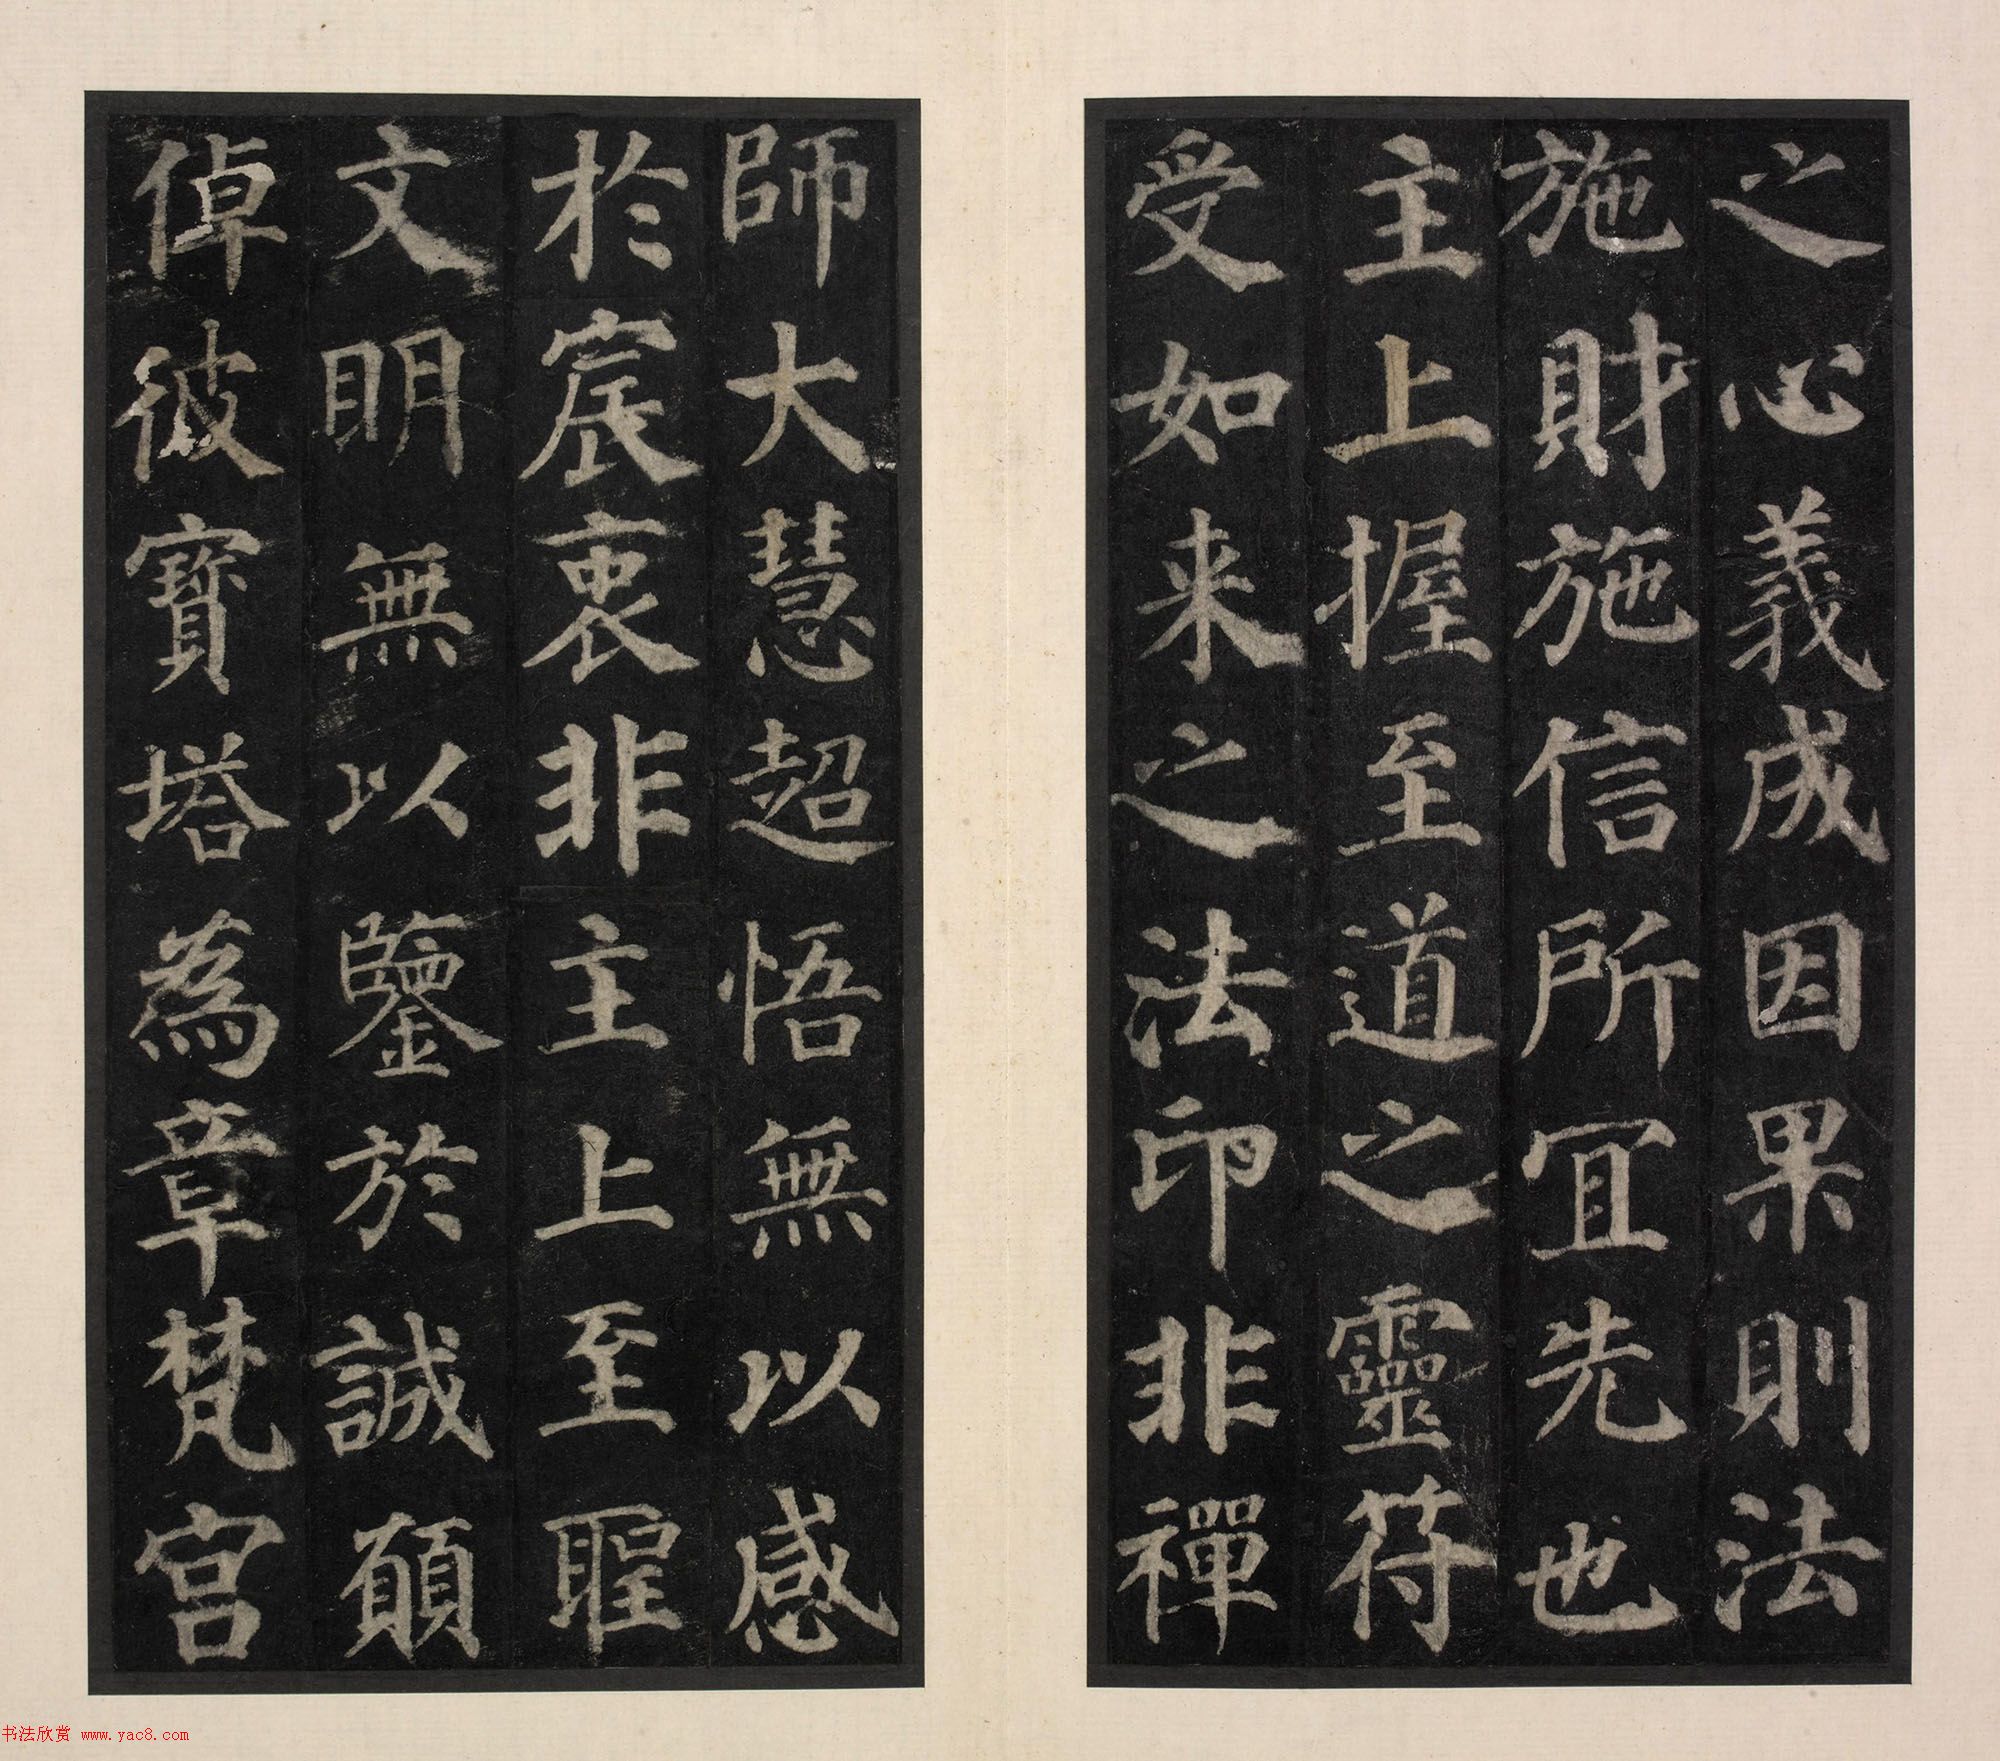 之心義成因果則法
施財施信所冝先也
主上握至道之靈符
受如来之法印非禪
師大慧超悟無以感
於宸衷非主上至聖
文明無以鑒於誠願
倬彼寶塔為章梵宫
书法欣赏 www.yac8.com